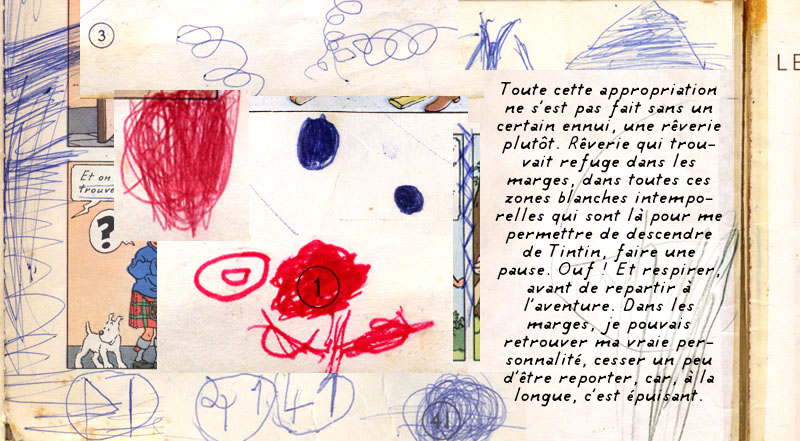 3
LE
Toute cette appropriation
ne s'est pas fait sans un
certain ennui, une rêverie
plutôt. Rêverie qui trou-
vait refuge dans les
marges, dans toutes ces
zones blanches intempo-
relles qui sont là pour me
permettre de descendre
de Tintin, faire une
pause. Ouf ! Et respirer,
avant de repartir à
l'aventure. Dans les
marges, je pouvais
retrouver ma vraie per-
sonnalité, cesser un peu
d'être reporter, car, à la
longue, c'est épuisant.
Et on
trouve
?
1
41
41